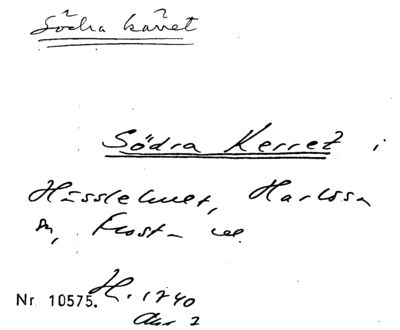 Södra kärret
Södra Kerret i
Hasslehuet, Harlösa
sn, Frosta
Nr 10575. H. 1740
Akt 2